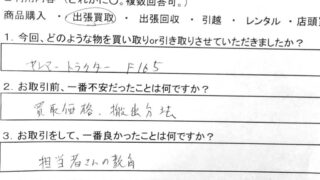 商品購入 ・ 出張買取 ・ 出張回収 ・ 引越 ・ レンタル ・ 店頭買
1. 今回、どのような物を買い取りor引き取りさせていただきましたか？
ヤンマートラクター F165
2. お取引前、一番不安だったことは何ですか？
買取価格、搬出方法
3. お取引をして、一番良かったことは何ですか？
担当者さんの教育